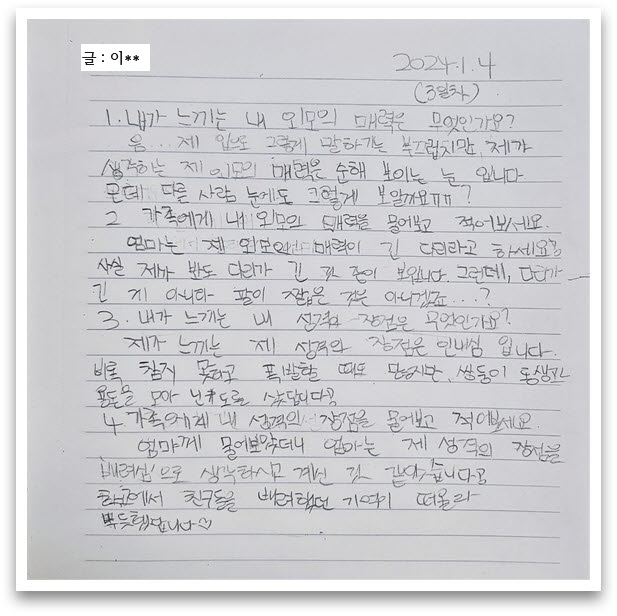 글 : 이**
2024.1.4
(3일차)
1. 내가 느끼는 내 외모의 매력은 무엇인가요?
음... 제 입으로 그렇게 말하기는 부끄럽지만, 제가
생각하는 제 외모의 매력은 순해 보이는 눈 입니다
근데 다른 사람 눈에도 그렇게 보일까요ㅠㅠ?
2 가족에게 내 외모의 매력을 물어보고 적어보세요.
엄마는 제 외모의 매력이 긴 다리라고 하세요
사실 제가 봐도 다리가 긴 것 같이 보입니다. 그런데, 다리가
긴 게 아니라 팔이 짧은 것은 아니겠죠....?
3. 내가 느끼는 내 성격의 장점은 무엇인가요?
제가 느끼는 제 성격의 장점은 인내심 입니다.
비록 참지 못하고 폭발할 때도 많지만, 쌍둥이 동생과
용돈을 모아 닌텐도를 샀답니다
4 가족에게 내 성격의 장점을 물어보고 적어보세요.
엄마께 물어보았더니 엄마는 제 성격의 장점을
'배려심'으로 생각하시고 계신 것 같았습니다
학교에서 친구들을 배려했던 기억이 떠올라
뿌듯했답니다